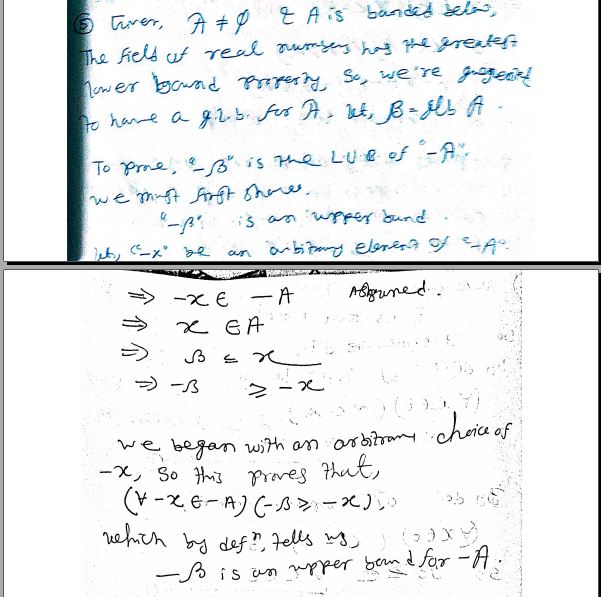 ⑤ Given, A ≠ φ & A is bounded below,
The field of real numbers has the greatest
lower bound property, So, we're guaranteed
to have a g.l.b. for A. let, β = glb A.
To prove, "-β" is the LUB of "-A",
we must first show.
"-β" is an upper bound.
let, "-x" be an arbitrary element of "-A".
⇒ -x ∈ -A Assumed.
⇒ x ∈ A
⇒ β ≤ x
⇒ -β ≥ -x
we began with an arbitrary choice of
-x, So this proves that,
(∀ -x ∈ -A) (-β ≥ -x),
which by defⁿ, tells us,
-β is an upper bound for -A.